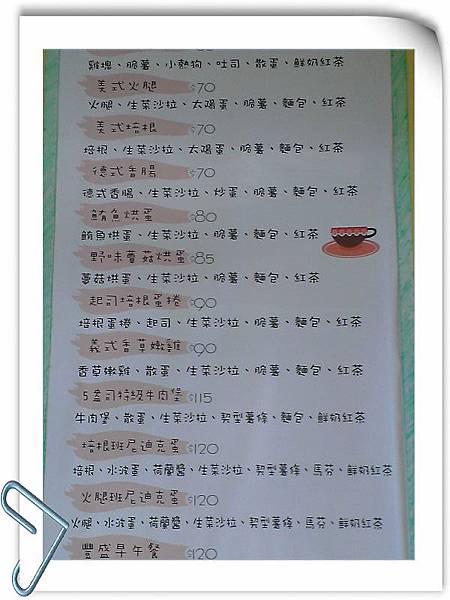 雞塊、脆薯、小熱狗、吐司、散蛋、鮮奶紅茶
美式火腿 $70
火腿、生菜沙拉、太陽蛋、脆薯、麵包、紅茶
美式培根 $70
培根、生菜沙拉、太陽蛋、脆薯、麵包、紅茶
德式香腸 $70
德式香腸、生菜沙拉、炒蛋、脆薯、麵包、紅茶
鮪魚烘蛋 $80
鮪魚烘蛋、生菜沙拉、脆薯、麵包、紅茶
野味蘑菇烘蛋 $85
蘑菇烘蛋、生菜沙拉、脆薯、麵包、紅茶
起司培根蛋捲 $90
培根蛋捲、起司、生菜沙拉、脆薯、麵包、紅茶
義式香草嫩雞 $90
香草嫩雞、散蛋、生菜沙拉、脆薯、麵包、紅茶
5盎司特級牛肉堡 $115
牛肉堡、散蛋、生菜沙拉、契型薯條、麵包、鮮奶紅茶
培根班尼迪克蛋 $120
培根、水波蛋、荷蘭醬、生菜沙拉、契型薯條、馬芬、鮮奶紅茶
火腿班尼迪克蛋 $120
火腿、水波蛋、荷蘭醬、生菜沙拉、契型薯條、馬芬、鮮奶紅茶
豐盛早午餐 $120